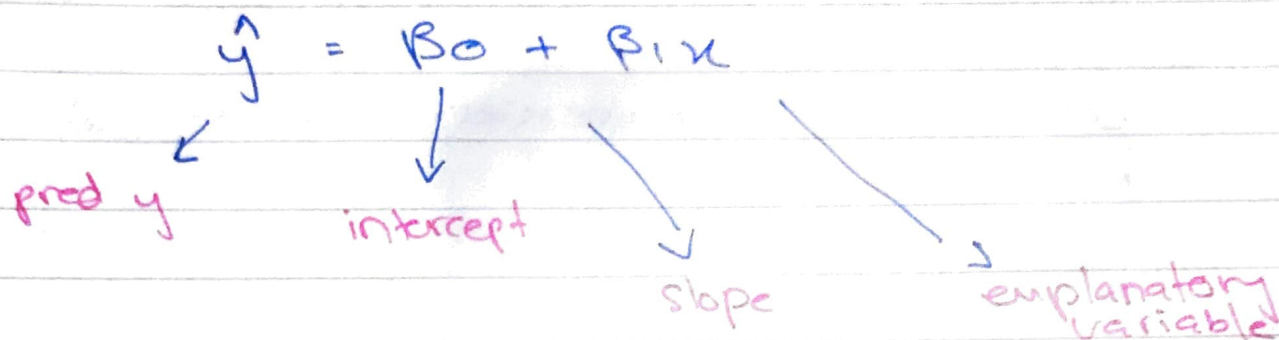 ŷ = β0 + β1x
pred y
intercept
slope
explanatory
variable